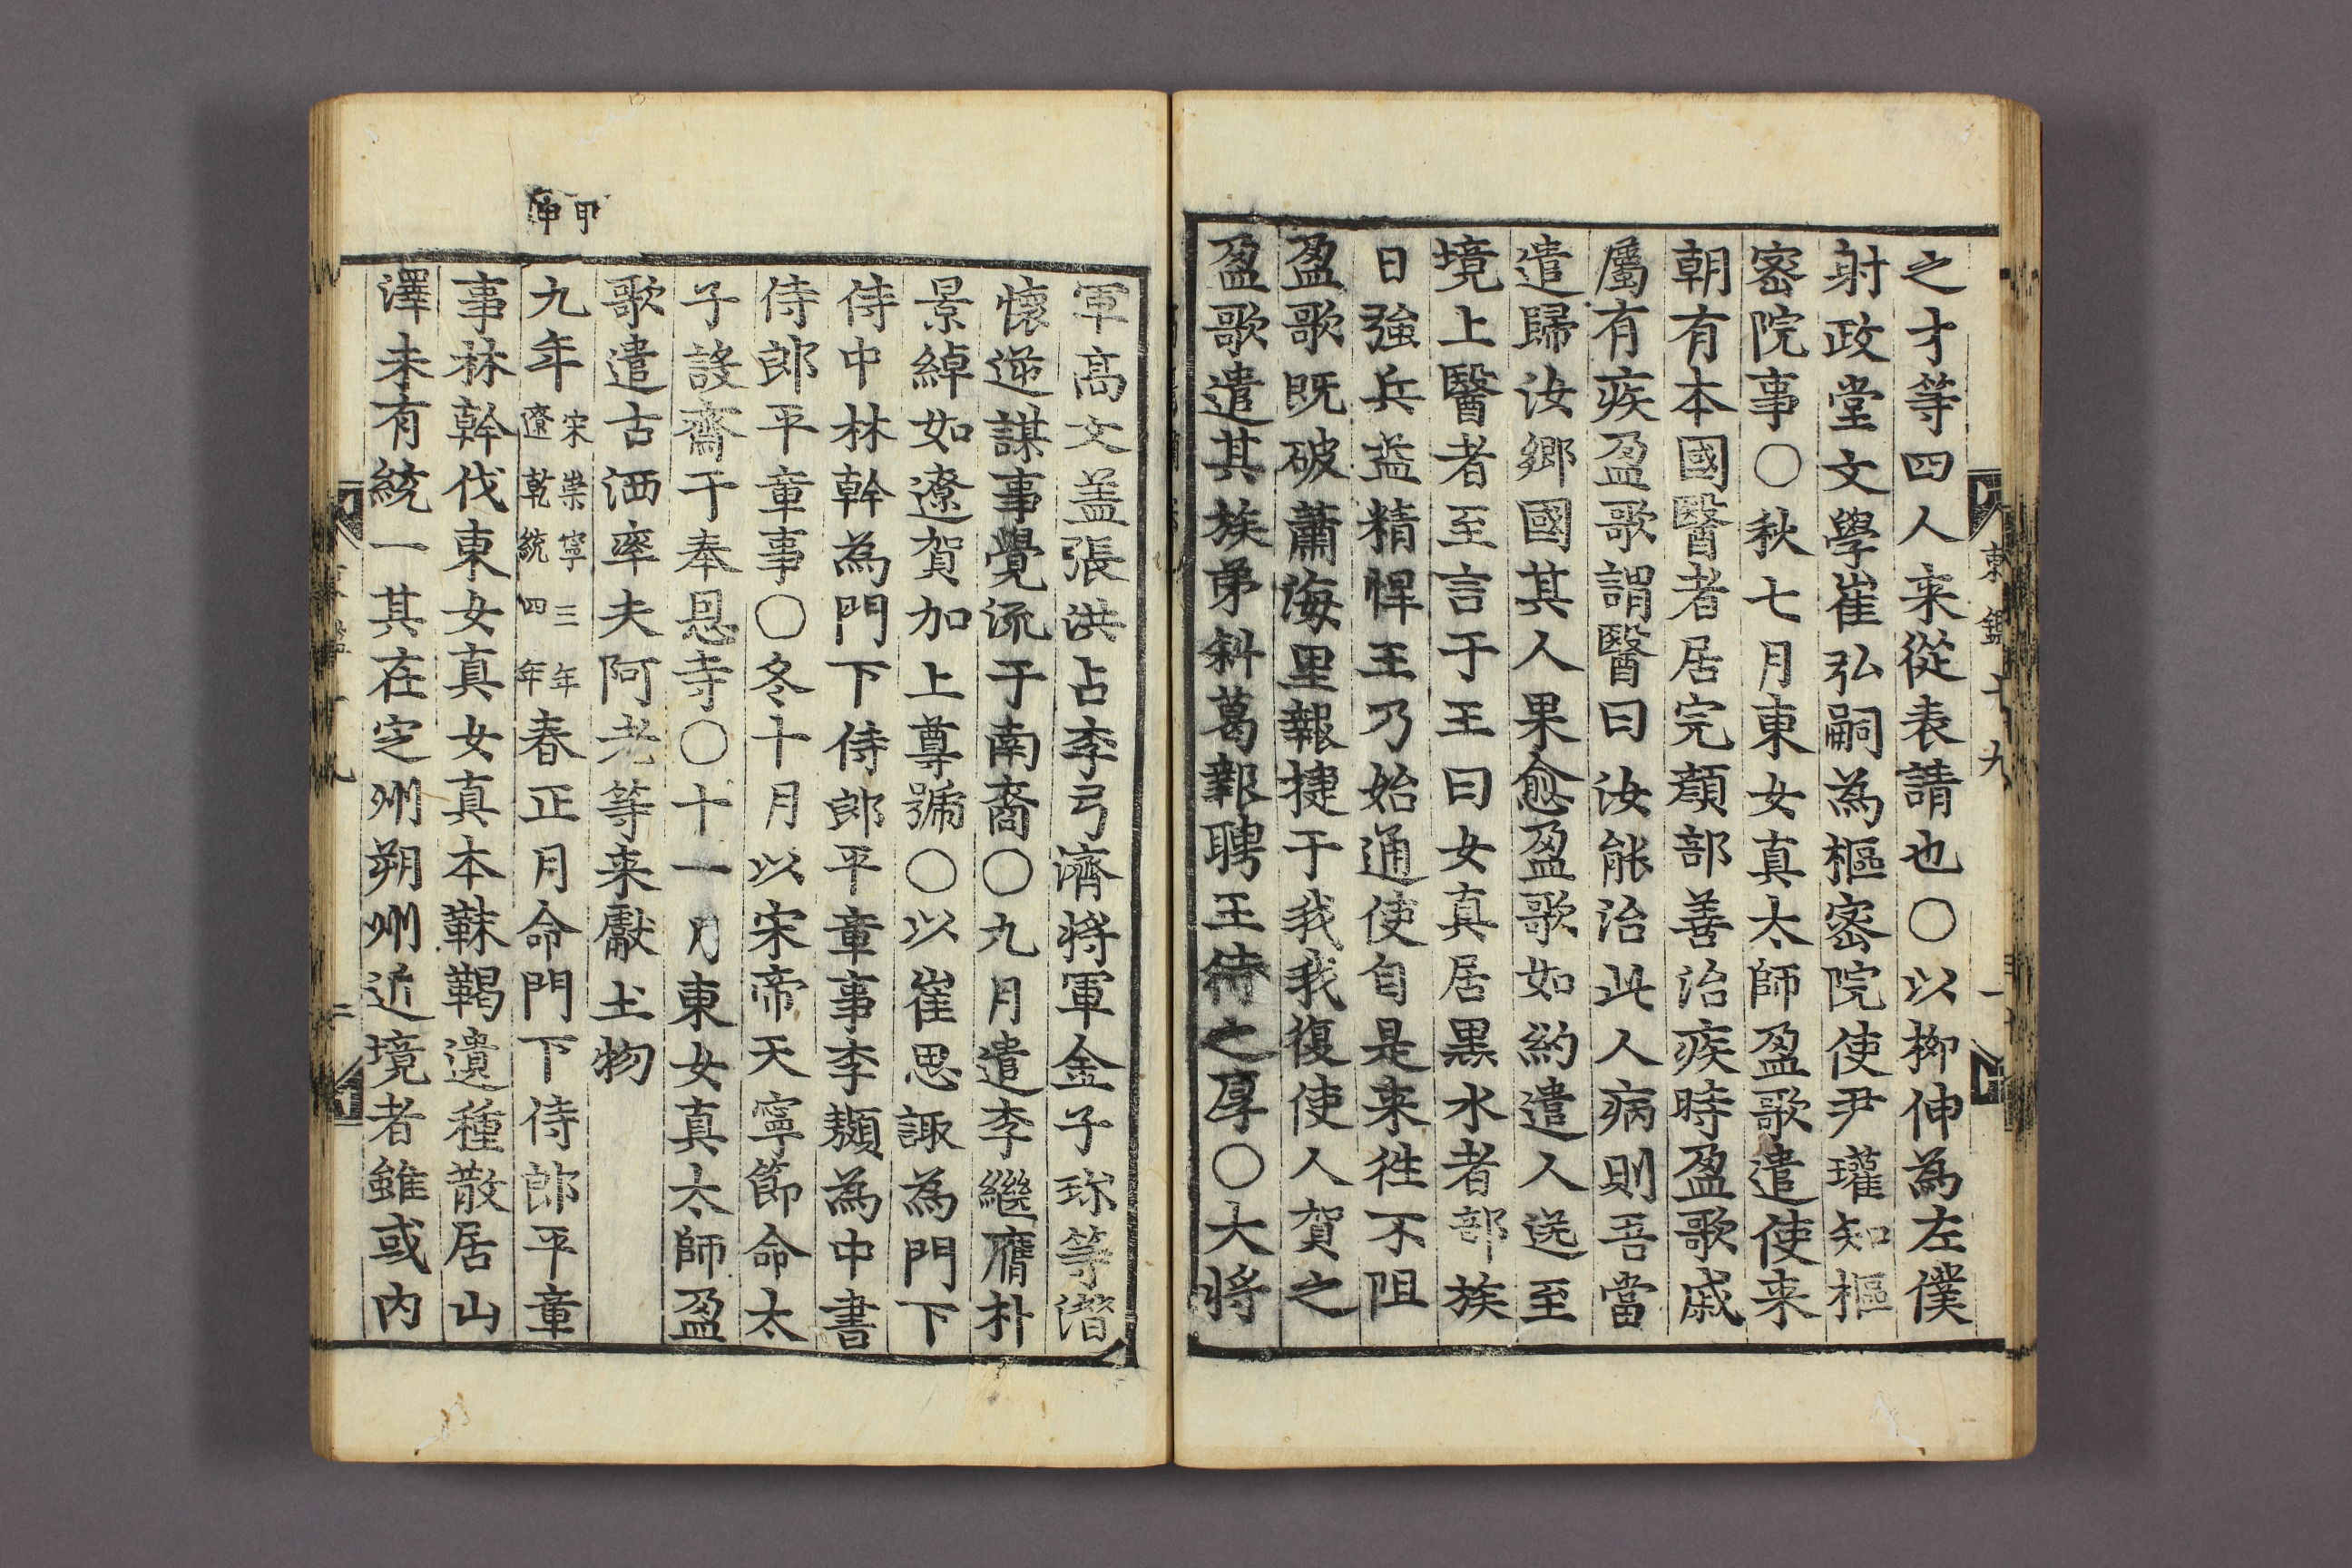 東鑑十九
之才等四人来從表請也○以柳伸為左僕
射政堂文學崔弘嗣為樞密院使尹瓘知樞
密院事○秋七月東女真太師盈歌遣使来
朝有本國醫者居完顔部善治疾時盈歌戚
屬有疾盈歌謂醫曰汝能治此人病則吾當
遣歸汝鄉國其人果愈盈歌如約遣人送至
境上醫者至言于王曰女真居黒水者部族
日強兵益精悍王乃始通使自是来徃不阻
盈歌既破蕭海里報捷于我我復使人賀之
盈歌遣其族弟斜葛報聘王待之厚○大將
軍高文盖張洪占李弓濟將軍金子珎等潜
懷逆謀事覺流于南裔○九月遣李繼膺朴
景綽如遼賀加上尊號○以崔思諏為門下
侍中林幹為門下侍郎平章事李䫨為中書
侍郎平章事○冬十月以宋帝天寧節命太
子設齋于奉恩寺○十一月東女真太師盈
歌遣古洒率夫阿老等来獻土物
甲申
九年宋崇寧三年遼乾統四年春正月命門下侍郎平章
事林幹伐東女真女真本靺鞨遺種散居山
澤未有統一其在定州朔州近境者雖或内